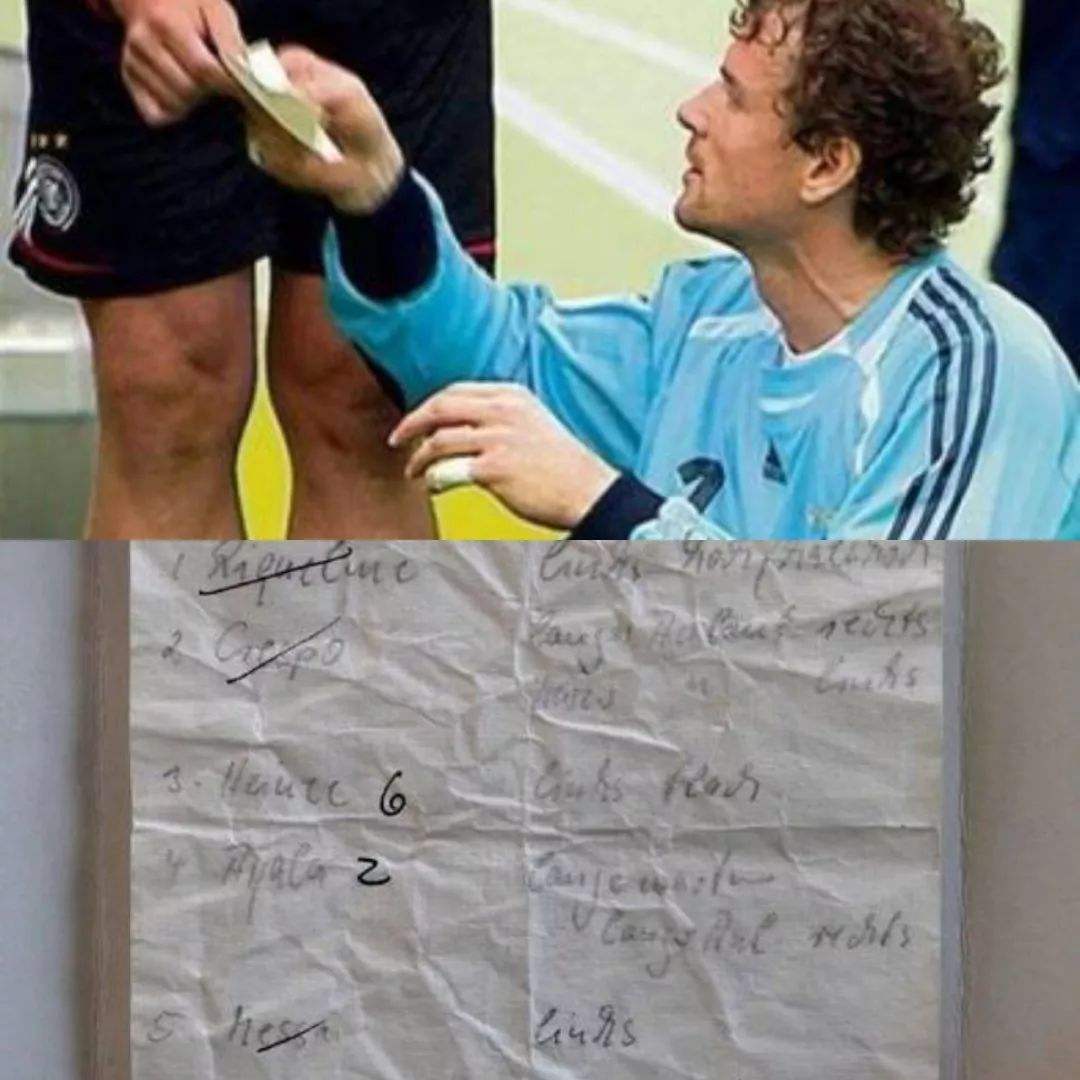 1 Riquelme links
2. Crespo langer Anlauf rechts
kurzer " links
3. Heinze 6 links flach
4 Ayala 2
langer Anl rechts
5 Messi links